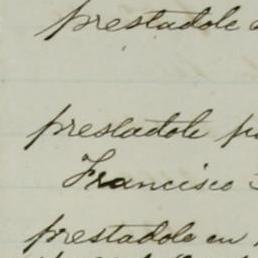 prestadole
prestadole
Francisco
prestadole en